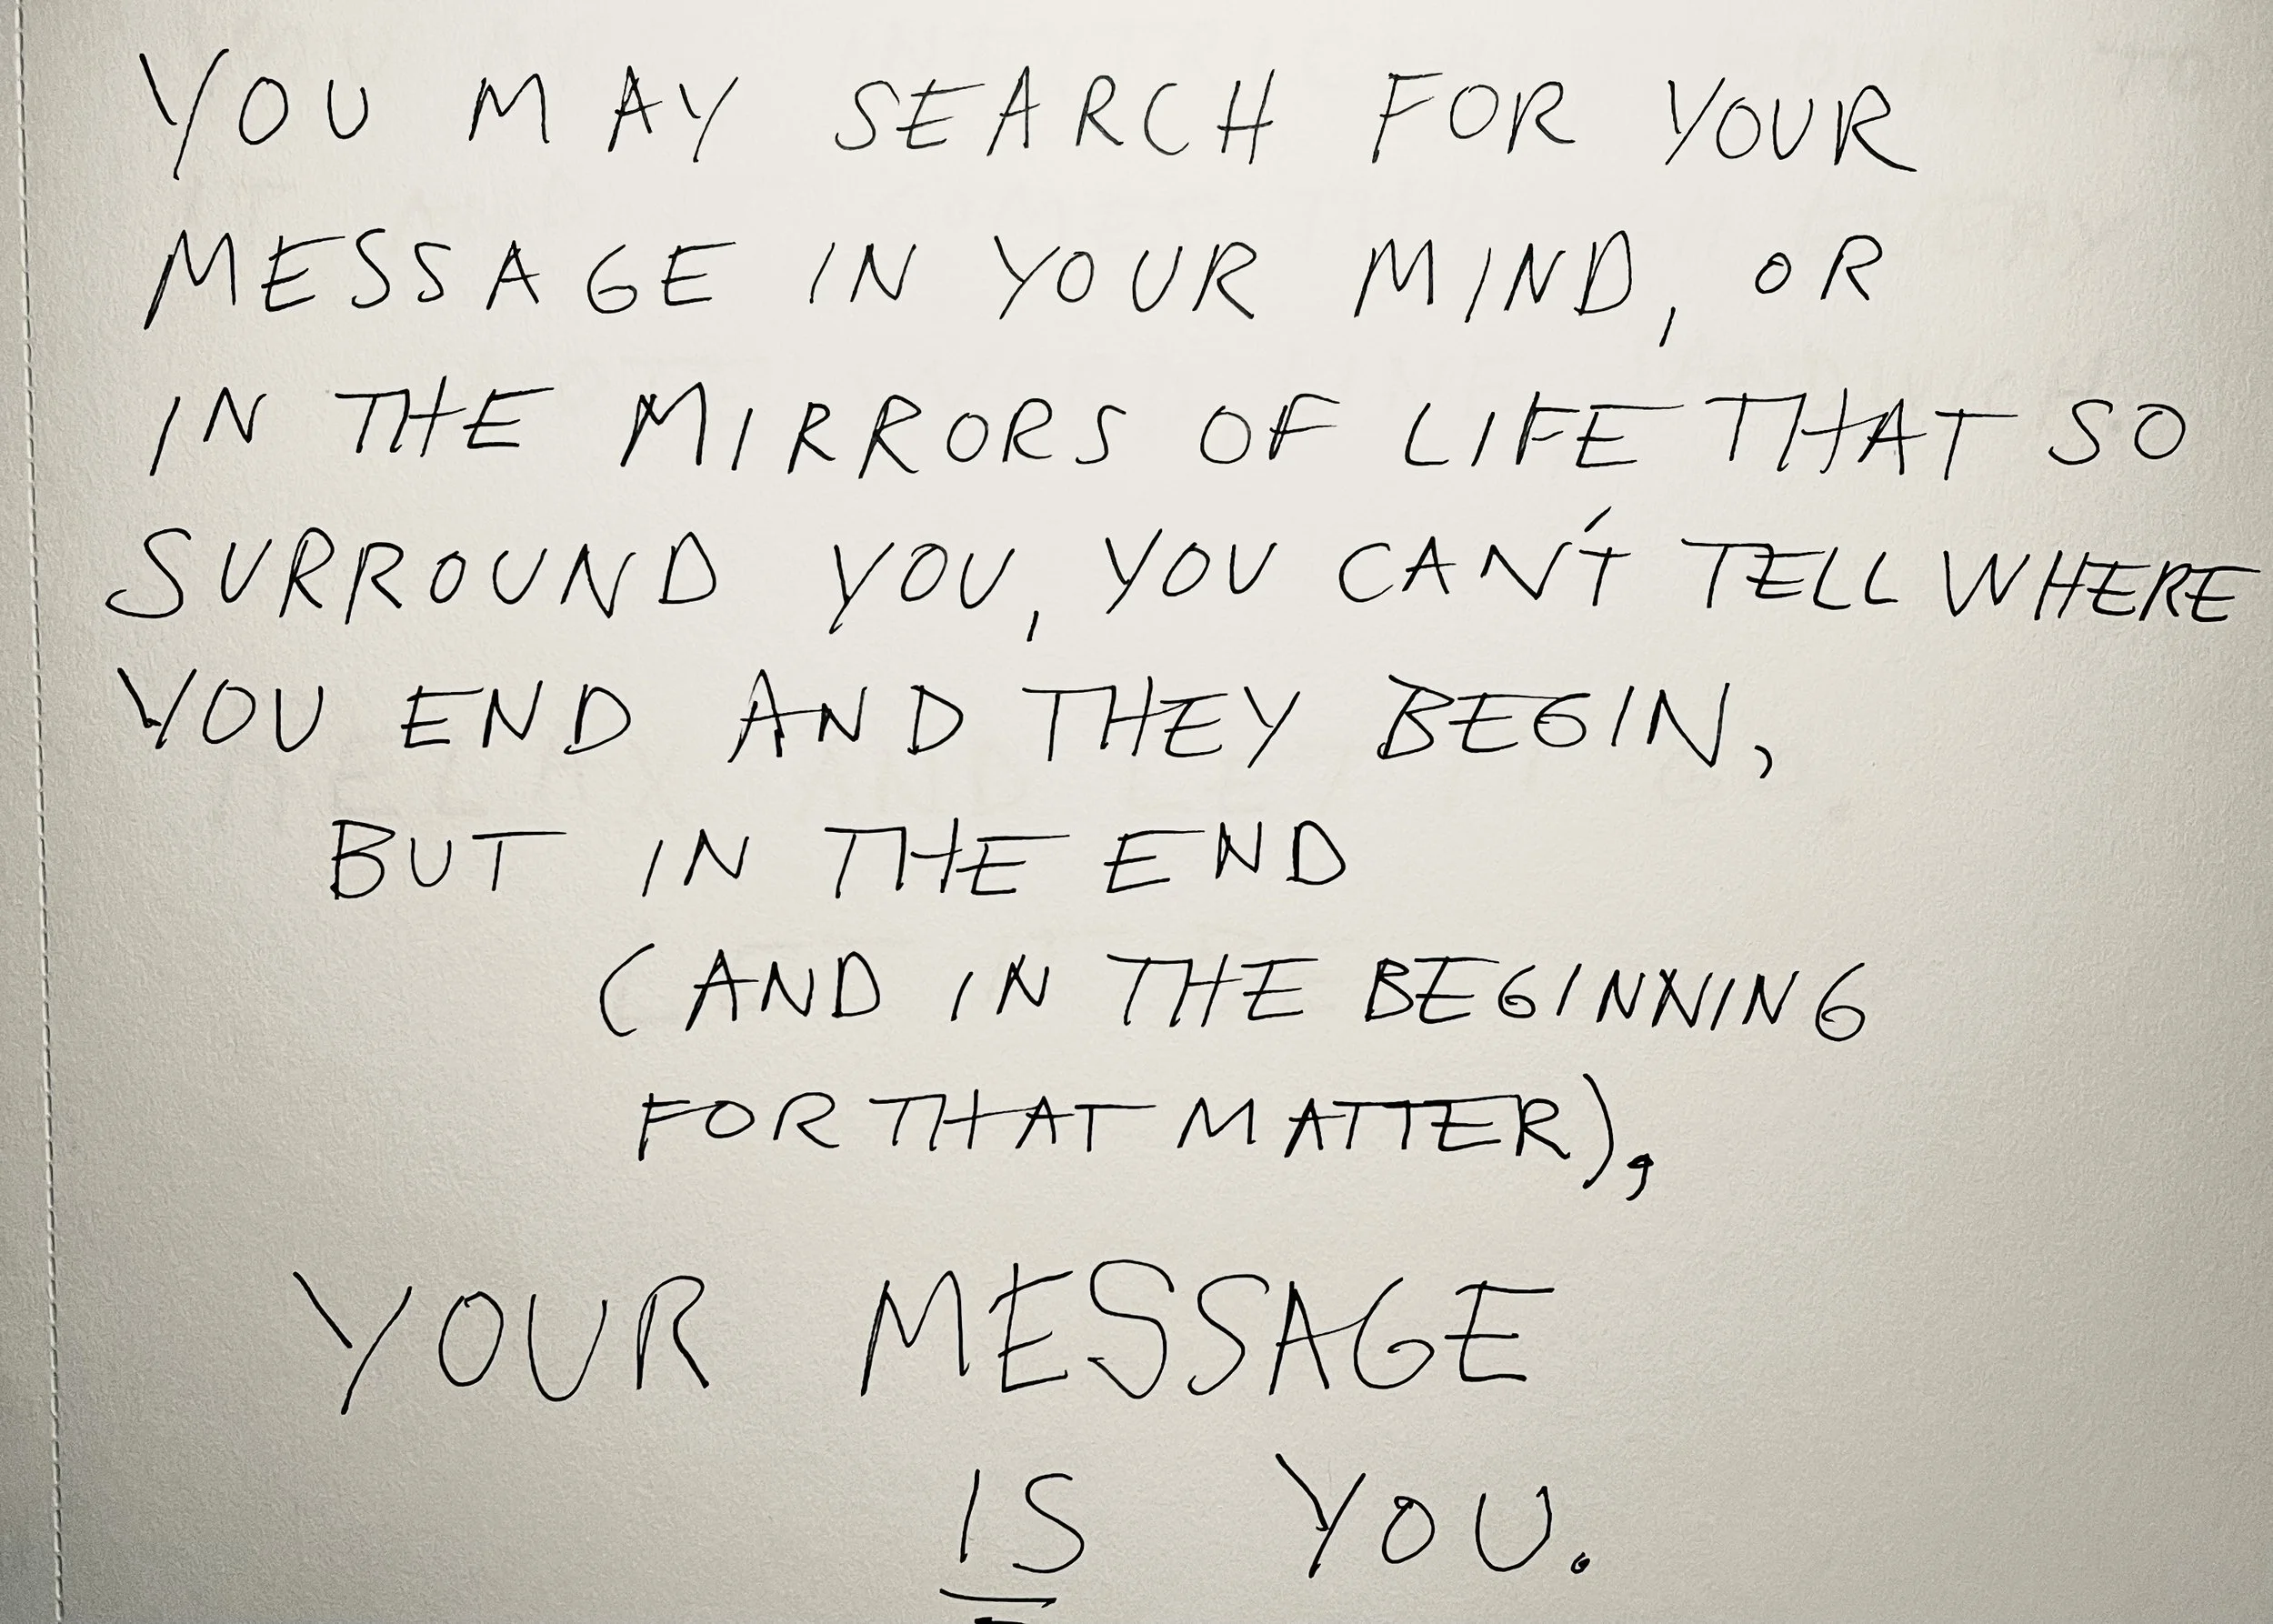 YOU MAY SEARCH FOR YOUR
MESSAGE IN YOUR MIND, OR
IN THE MIRRORS OF LIFE THAT SO
SURROUND YOU, YOU CAN'T TELL WHERE
YOU END AND THEY BEGIN,
BUT IN THE END
(AND IN THE BEGINNING
FOR THAT MATTER),
YOUR MESSAGE
IS YOU.